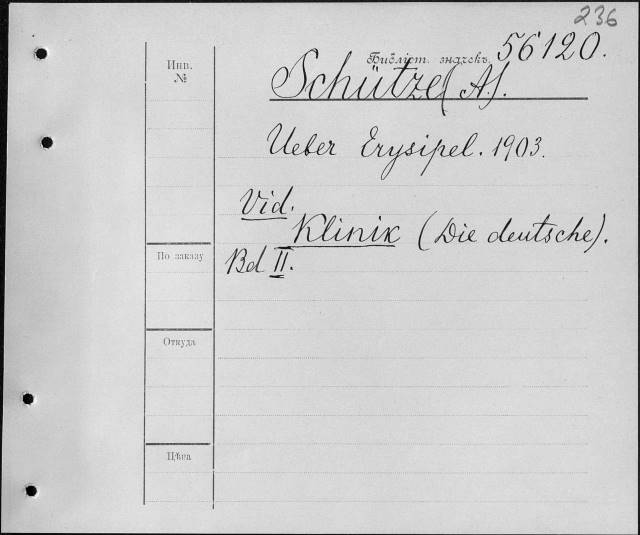 236
Инв.
№
Библіот. значекъ 56120.
Schütze (A.).
Ueber Erysipel. 1903.
Vid.
Klinik (Die deutsche).
По заказу
Bd II.
Откуда
Цѣна